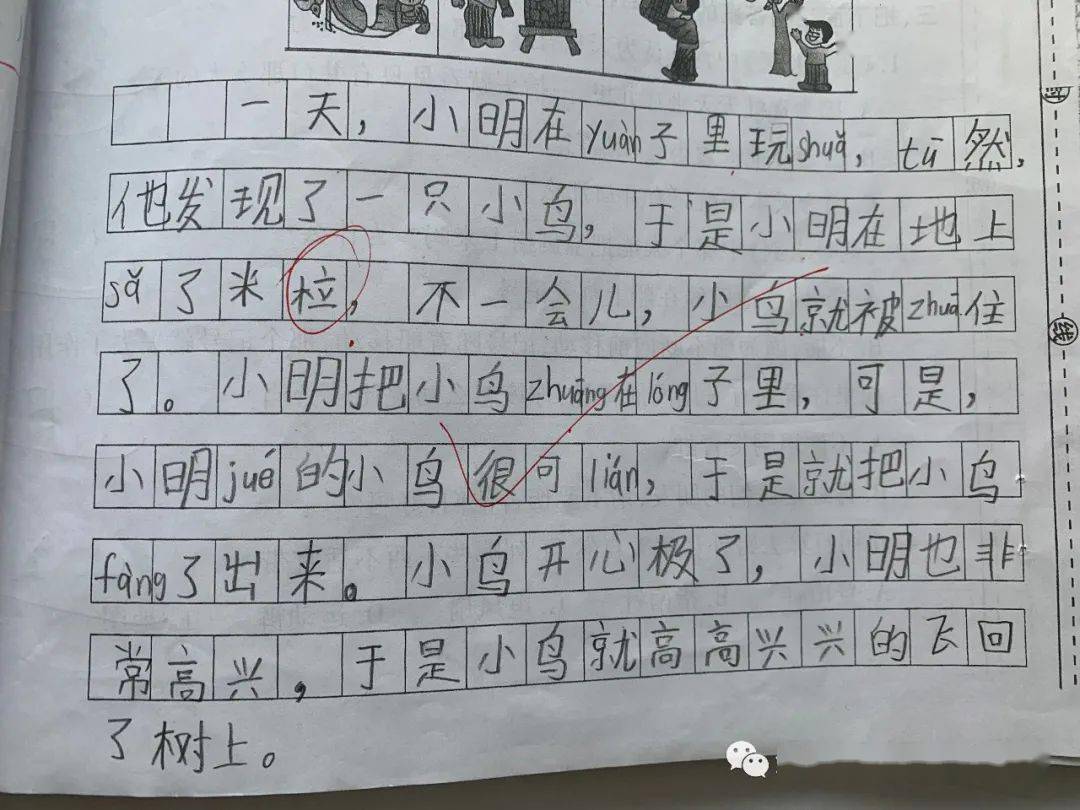 一天，小明在yuàn子里玩shuǎ，tū然，
他发现了一只小鸟，于是小明在地上
sǎ了米粒，不一会儿，小鸟就被zhuā住
了。小明把小鸟zhuāng在lóng子里，可是，
小明jué的小鸟很可lián，于是就把小鸟
fàng了出来。小鸟开心极了，小明也非
常高兴，于是小鸟就高高兴兴的飞回
了树上。
线